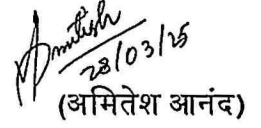 Amitesh
28/03/25
(अमितेश आनंद)